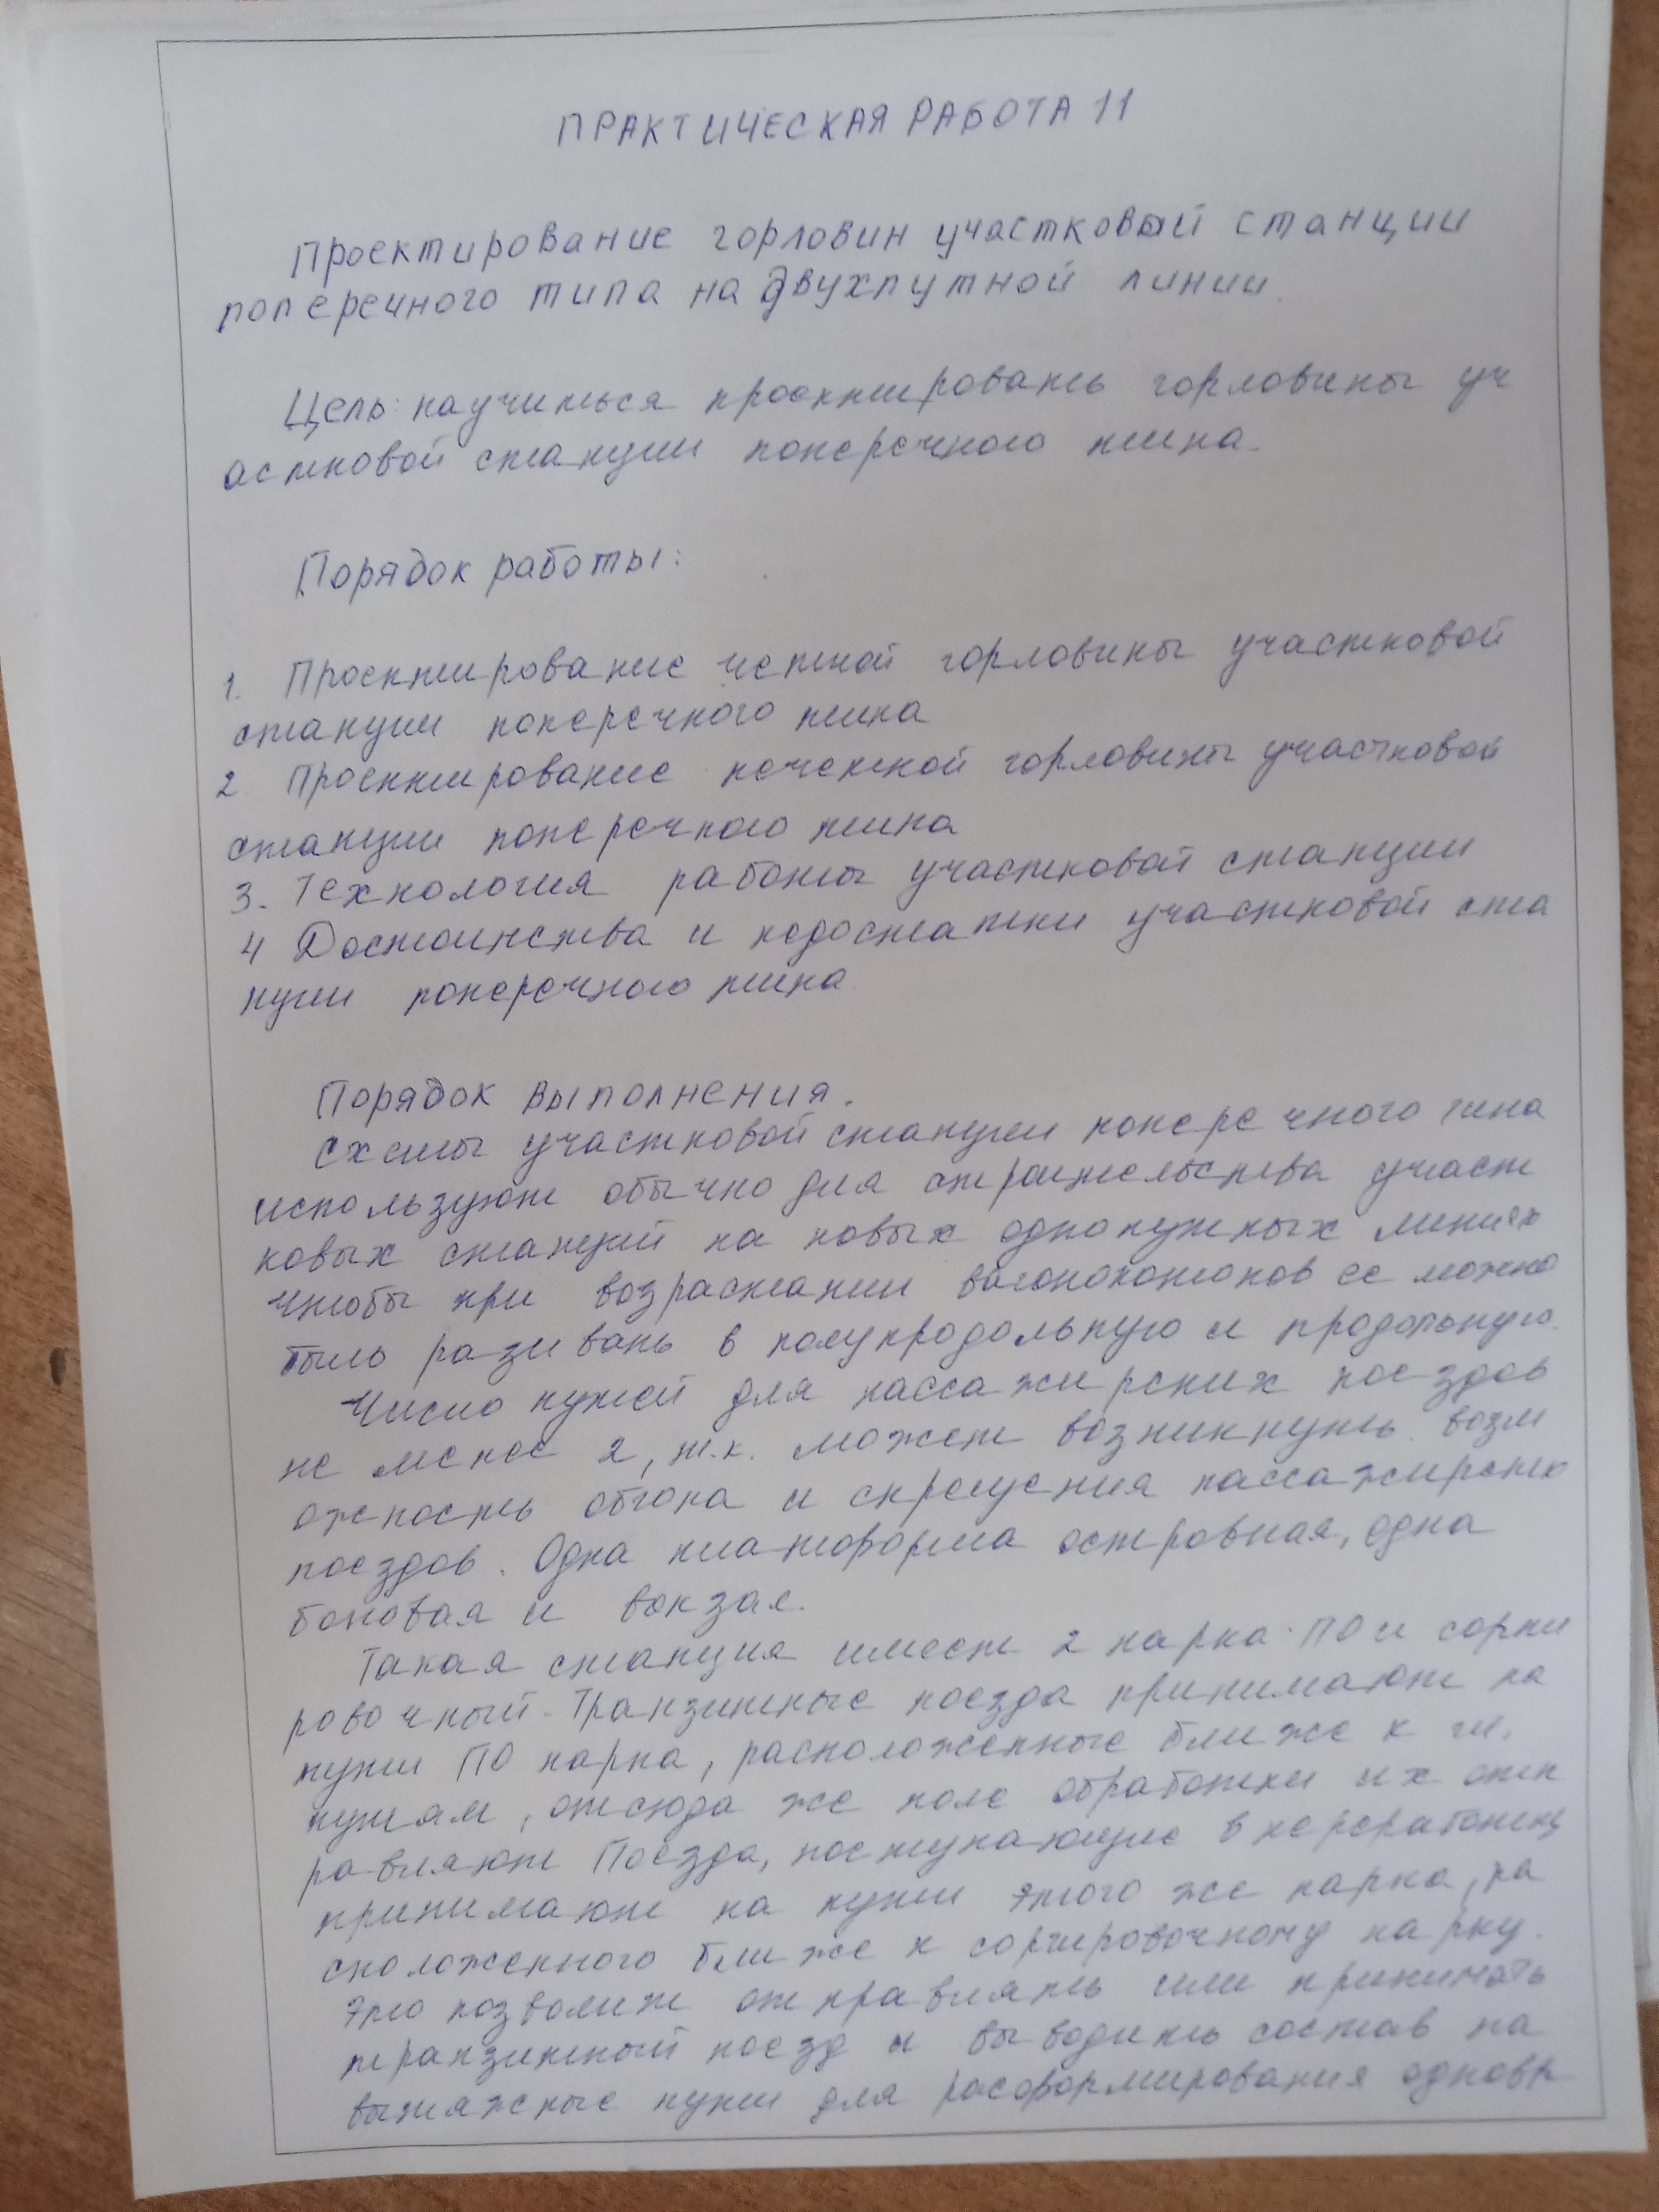 ПРАКТИЧЕСКАЯ РАБОТА 11
Проектирование горловин участковый станции
поперечного типа на двухпутной линии.
Цель: научиться проектировать горловины уч
астковой станции поперечного типа.
Порядок работы:
1. Проектирование четной горловины участковой
станции поперечного типа
2. Проектирование нечетной горловины участковой
станции поперечного типа
3. Технология работы участковой станции
4 Достоинства и недостатки участковой ста
нции поперечного типа
Порядок выполнения.
Схемы участковой станции поперечного типа
используют обычно для строительства участ
ковых станций на новых однопутных линиях
Чтобы при возрастании вагонопотоков ее можно
было развивать в полупродольную и продольную.
Число путей для пассажирских поездов
не менее 2, т.к. может возникнуть возм
ожность обгона и скрещения пассажирских
поездов. Одна платформа островная, одна
боковая и вокзал.
Такая станция имеет 2 парка: ПО и сорти
ровочный. Транзитные поезда принимают на
пути ПО парка, расположенные ближе к гл.
путям, отсюда же после обработки их отп
равляют Поезда, поступающие в переработку
принимают на пути этого же парка, ра
сположенного ближе к сортировочному парку.
Это позволит отправлять или принимать
транзитный поезд и выводить состав на
вытяжные пути для расформирования одновр